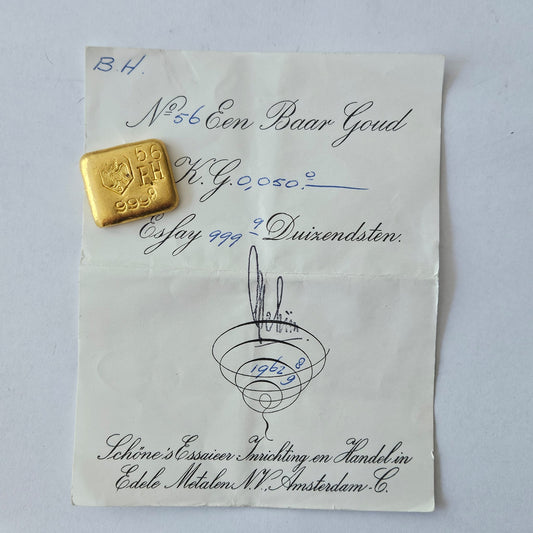 B.H.
Nº 56 Een Baar Goud
56
FH
999⁹
K.G. 0,050.⁰
Essay 999 ⁹ Duizendsten.
1962 8
9
Schöne's Essaieer-Inrichting en Handel in
Edele Metalen N.V. Amsterdam-C.